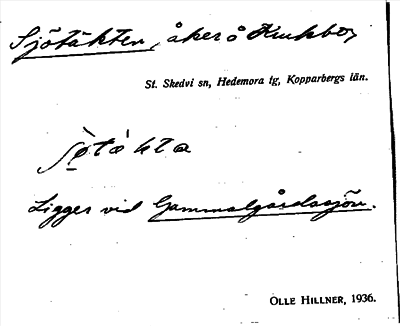 Sjötäkten, åker å Krukbo,
St. Skedvi sn, Hedemora tg, Kopparbergs län.
Ligger vid Gammalgårdasjön.
OLLE HILLNER, 1936.